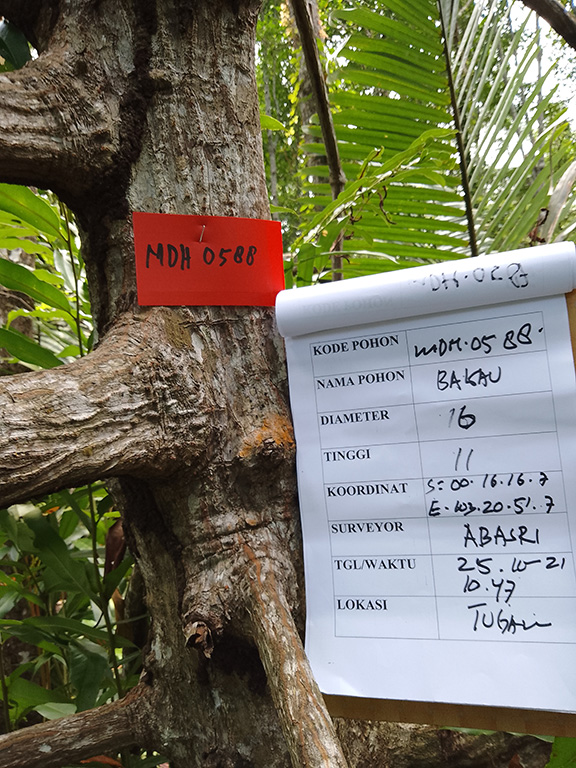 MDH 0588
KODE POHON MDH.0588.
NAMA POHON BAKAU
DIAMETER 16
TINGGI 11
KOORDINAT S=00.16.16.7
E=103.20.51.7
SURVEYOR ABASRI
TGL/WAKTU 25.10-21
10.47
LOKASI